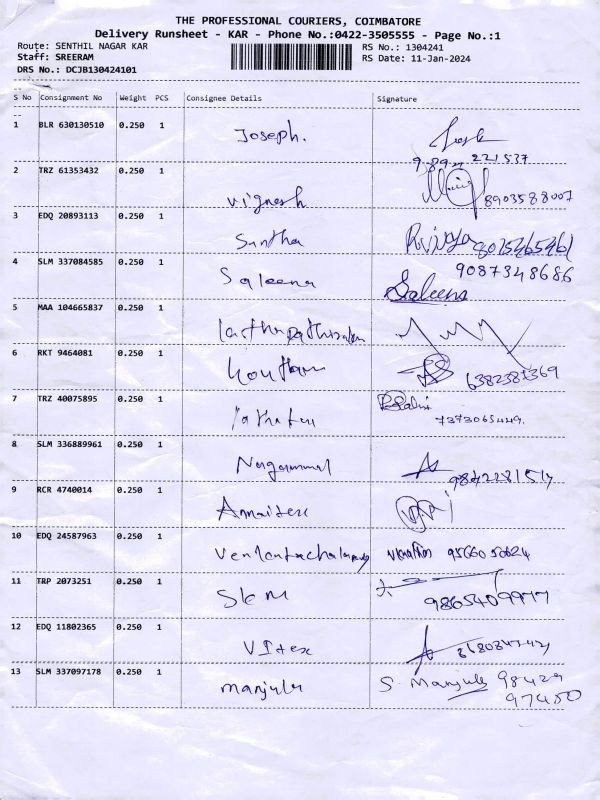 THE PROFESSIONAL COURIERS, COIMBATORE
Delivery Runsheet - KAR - Phone No.:0422-3505555 - Page No.:1
Route: SENTHIL NAGAR KAR RS No.: 1304241
Staff: SREERAM RS Date: 11-Jan-2024
DRS No.: DCJB130424101
S No Consignment No Weight PCS Consignee Details Signature
1 BLR 630130510 0.250 1 Joseph.
2 TRZ 61353432 0.250 1 Vignesh 8903588007
3 EDQ 20893113 0.250 1 Santha
4 SLM 337084585 0.250 1 Saleena 9087348686
Saleena
5 MAA 104665837 0.250 1
6 RKT 9464081 0.250 1
7 TRZ 40075895 0.250 1 7373065449.
8 SLM 336889961 0.250 1 Nagammal
9 RCR 4740014 0.250 1 Annaitex
10 EDQ 24587963 0.250 1
11 TRP 2073251 0.250 1 SKM
12 EDQ 11802365 0.250 1 VItex
13 SLM 337097178 0.250 1 manjula S. Manjula 98429
97450